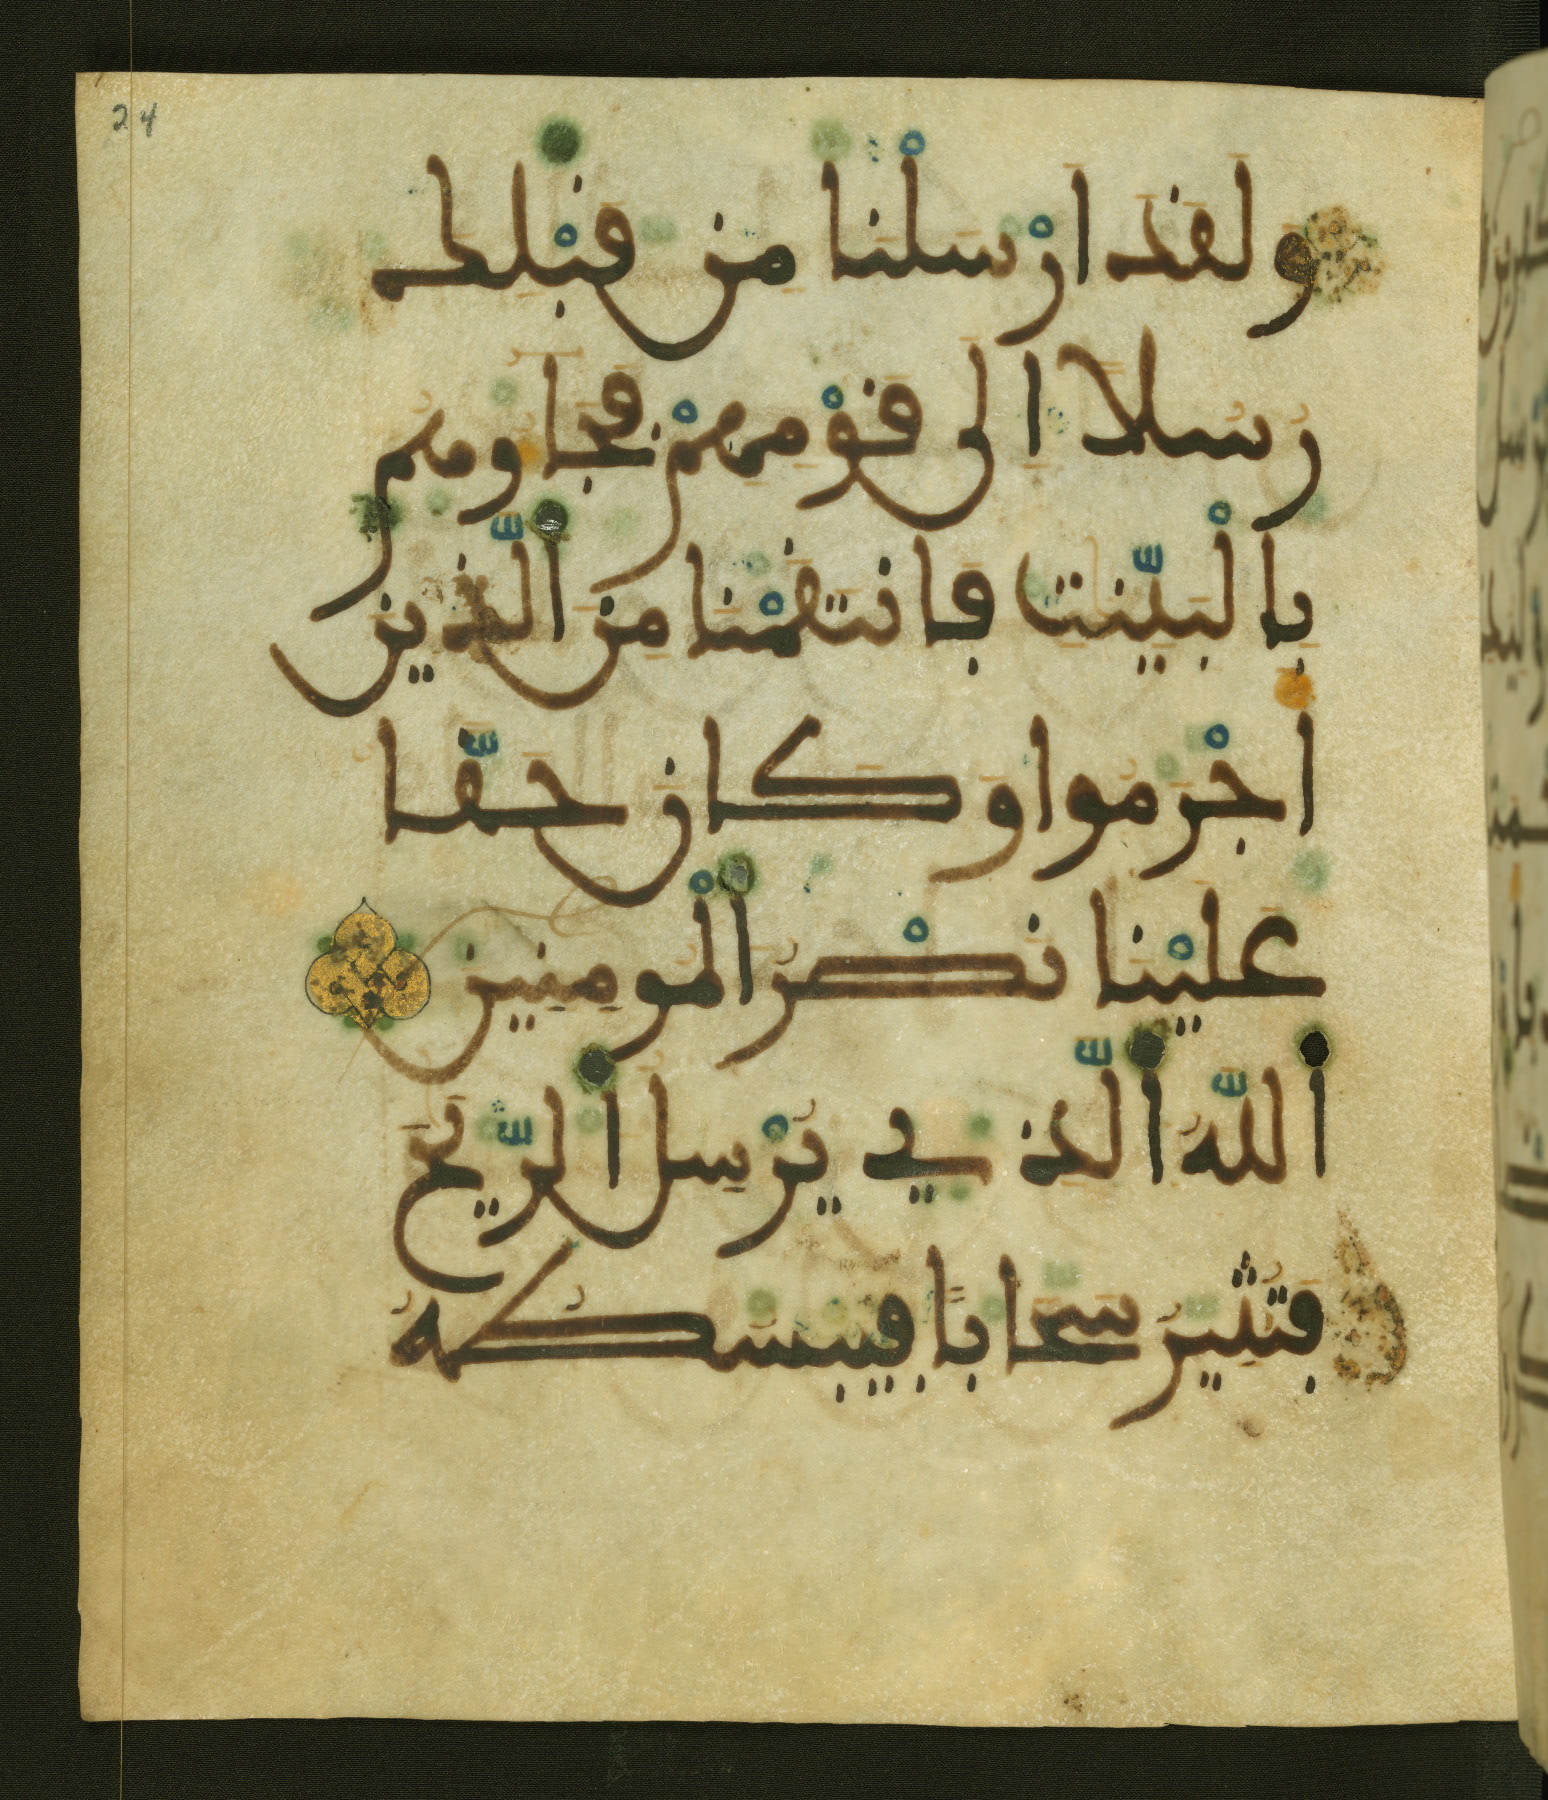 24
ولقد ارسلنا من قبلك
رسلا الى قومهم فجاوهم
بالبينت فانتقمنا من الذين
اجرموا وكان حقا
علينا نصر المومنين
الله الذي يرسل الريح
فتثير سحابا فيبسطه